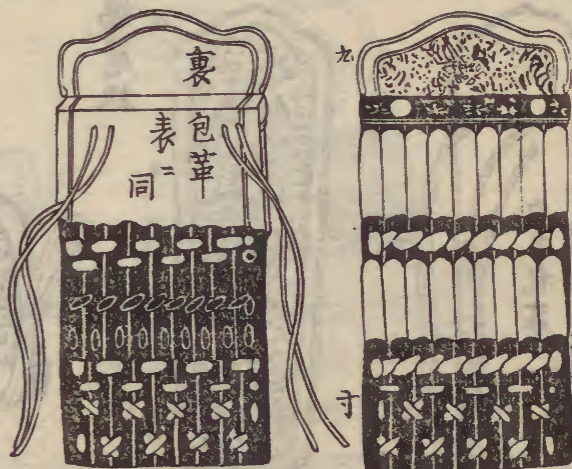 裏
包革
表ニ同
九寸